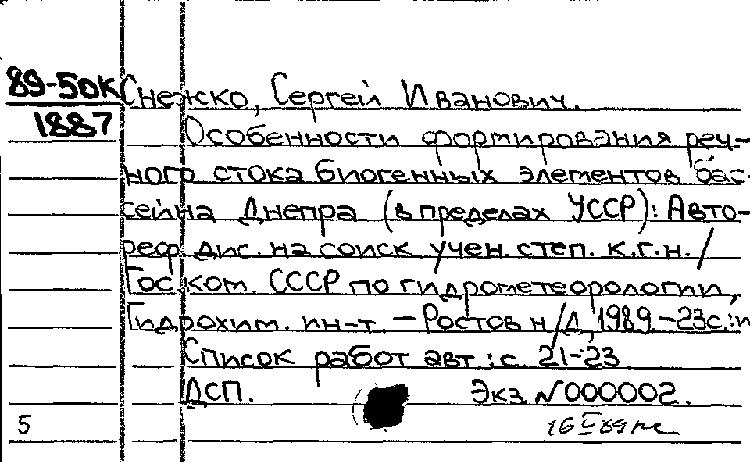 89-50К Снежко, Сергей Иванович.
1887
Особенности формирования реч-
ного стока биогенных элементов бас-
сейна Днепра (в пределах УССР): Авто-
реф. дис. на соиск учен. степ. к.г.н. /
Гос ком. СССР по гидрометеорологии,
Гидрохим. ин-т. – Ростов н/Д, 1989 – 23с.:и
Список работ авт.: с. 21-23
ДСП. Экз. №000002.
5